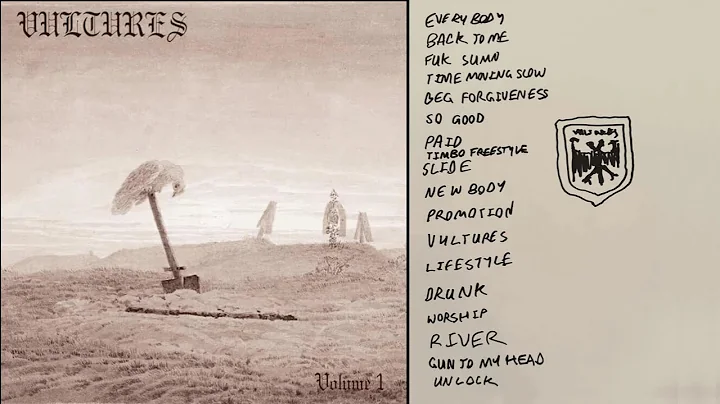 VULTURES
Volume 1
EVERYBODY
BACK TO ME
FUK SUMN
TIME MOVING SLOW
BEG FORGIVENESS
SO GOOD
PAID
TIMBO FREESTYLE
SLIDE
NEW BODY
PROMOTION
VULTURES
LIFESTYLE
DRUNK
WORSHIP
RIVER
GUN TO MY HEAD
UNLOCK
VULTURES